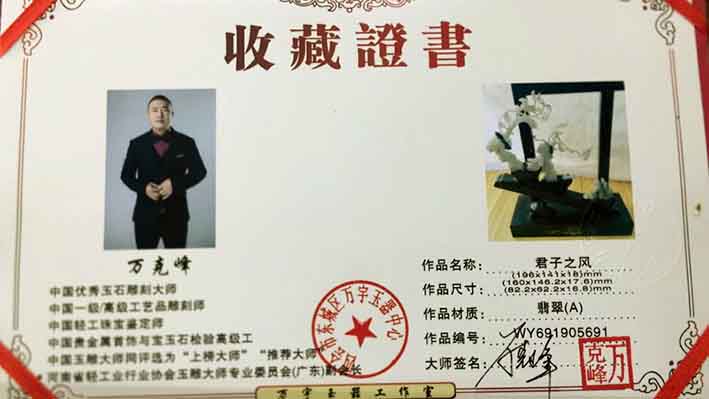 收藏證書
万克峰
中国优秀玉石雕刻大师
中国一级/高级工艺品雕刻师
中国轻工珠宝鉴定师
中国贵金属首饰与宝玉石检验高级工
中国玉雕大师网评选为“上榜大师”“推荐大师”
河南省轻工业行业协会玉雕大师专业委员会(广东)副会长
作品名称: 君子之风
(196x141x18)mm
作品尺寸: (160x146.2x17.6)mm
(82.2x62.2x16.8)mm
作品材质: 翡翠(A)
作品编号: WY691905691
大师签名:
万克峰
会市东城区万宇玉器中心
万宇玉器工作室